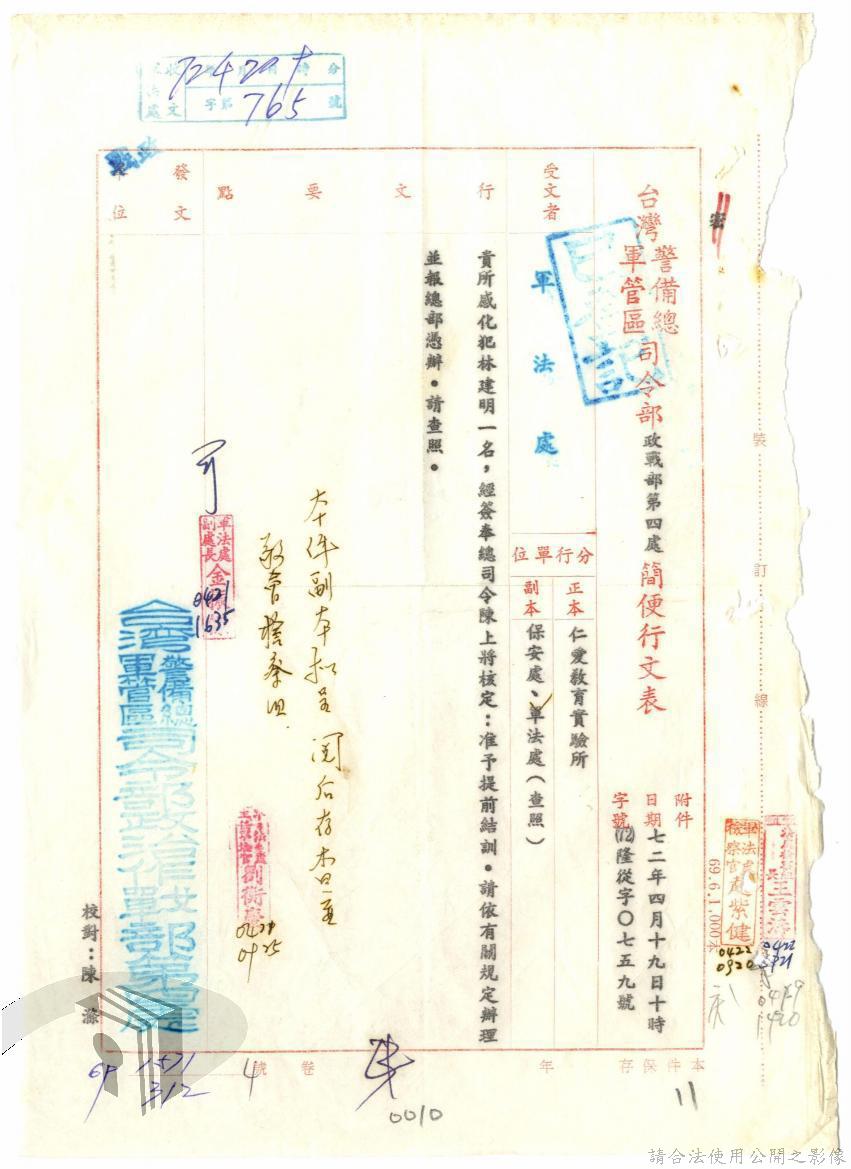 72 4 20
收文
字第765號
密
台灣警備總
軍管區
司令部政戰部第四處簡便行文表
附件
日期 七二年四月十九日十時
字號 (72)隆從字〇七五九號
受文者 軍法處
分行單位
正本 仁愛教育實驗所
副本 保安處、軍法處(查照)
行文要點
貴所感化犯林建明一名,經簽奉總司令陳上將核定:准予提前結訓。請依有關規定辦理
並報總部憑辦。請查照。
本件副本
發文
單位
台灣警備總
軍管區
司令部政治作戰部第四處
可
軍法處
副處長
金
0421
1635
校對:陳滌
軍法處
檢察官
趙紫健
0422
0920
69.6.1,000本
裝訂線
本件保存 年
卷 號
4
1571
312
0010
11
請合法使用公開之影像